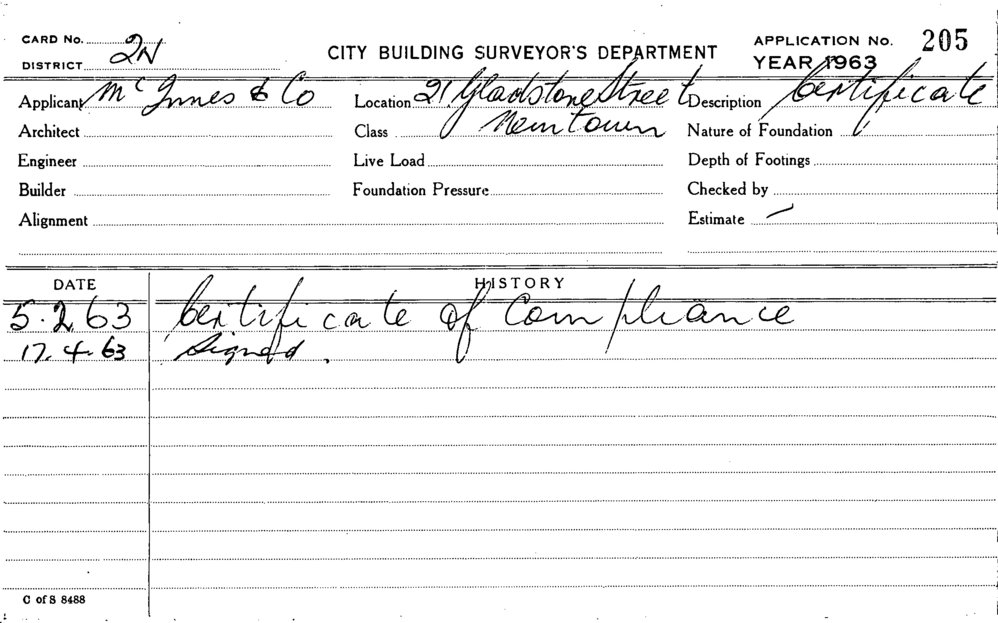 CARD No.
DISTRICT 2N
CITY BUILDING SURVEYOR'S DEPARTMENT
APPLICATION No. 205
YEAR 1963
Applicant McInnes & Co Location 21 Gladstone Street Description Certificate
Architect Class Newtown Nature of Foundation
Engineer Live Load Depth of Footings
Builder Foundation Pressure Checked by
Alignment Estimate —
DATE HISTORY
5.2.63 Certificate of Compliance
17.4.63 Signed.
C of S 8488